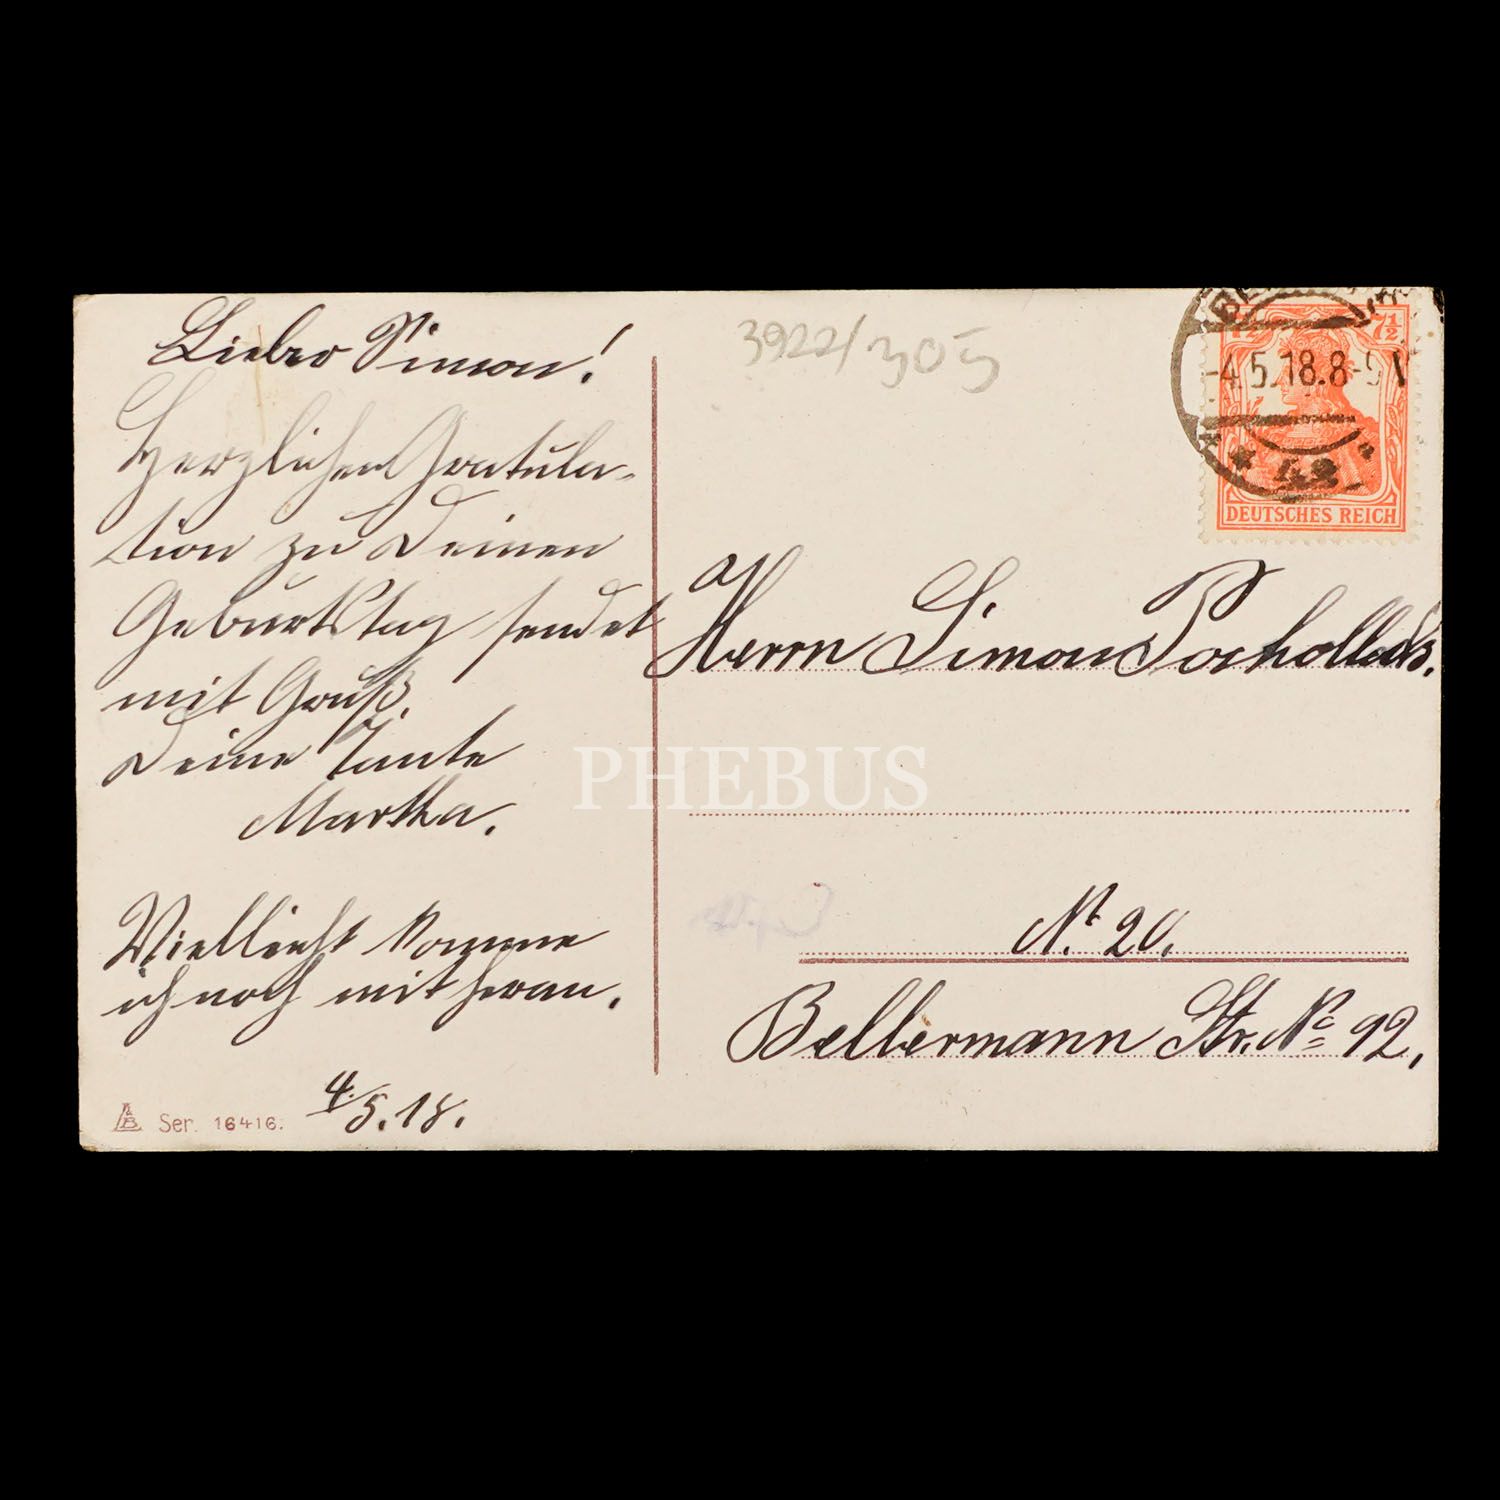 Lieber Simon!
Herzlichen Gratula-
tion zu Deinen
Geburtstag sendet
mit Gruß.
Deine Tante
Martha.
Vielleicht komme
ich noch mit heran.
4./5.18.
Ser. 16416.
3922/305
7½
-4.5.18.8-9V
DEUTSCHES REICH
Herrn Simon
N. 20.
Bellermann Str. No 92.
PHEBUS